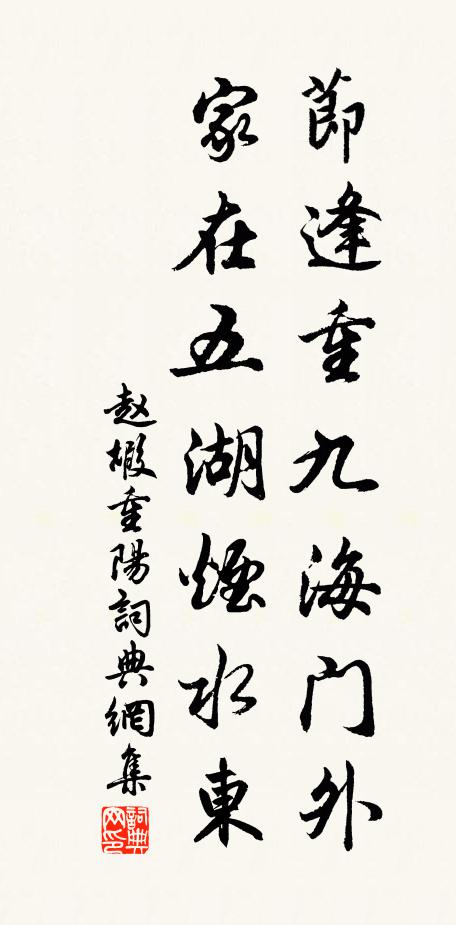 節逢重九海門外
家在五湖煙水東
赵嘏重陽詞典網集
詞典网印